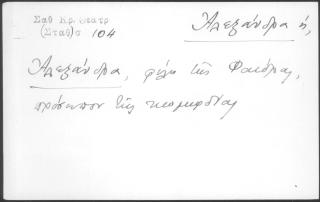 Σαθ Κρ. Θεατρ
(Σταθ)σ 104
Ἀλεξάνδρα ἡ,
Ἀλεξάνδρα, φίλη τῆς Φαίδρας,
πρόσωπον τῆς κωμῳδίας